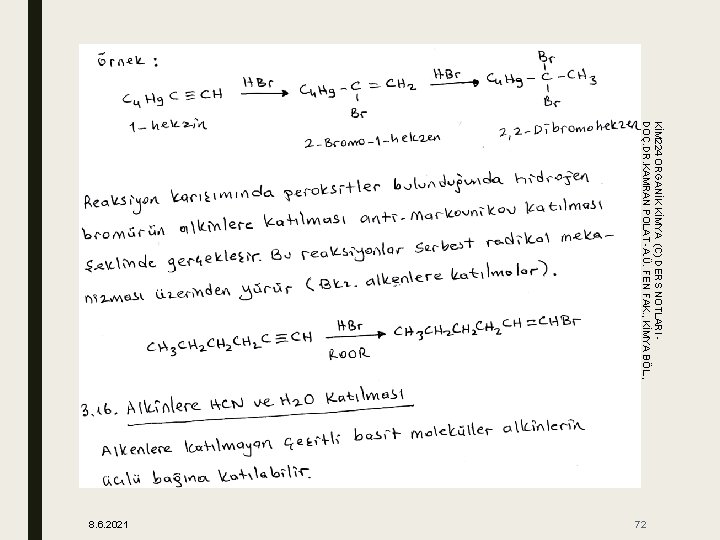 örnek :
C₄H₉C≡CH HBr→ C₄H₉-C=CH₂ HBr→ C₄H₉-C-CH₃
Br Br Br
1-hekzin 2-Bromo-1-hekzen 2,2-Dibromohekzen
Reaksiyon karışımında peroksitler bulunduğunda hidrojen
bromürün alkinlere katılması anti-markovnikov katılması
şeklinde gerçekleşir. Bu reaksiyonlar serbest radikal meka-
nizması üzerinden yürür (Bkz. alkenlere katılmalar).
CH₃CH₂CH₂CH₂C≡CH HBr→ROOR CH₃CH₂CH₂CH₂CH=CHBr
3.16. Alkinlere HCN ve H₂O Katılması
Alkenlere katılmayan çeşitli basit moleküller alkinlerin
üçlü bağına katılabilir.
KİM224 ORGANİK KİMYA (C) DERS NOTLARI-
DOÇ.DR.KAMRAN POLAT-A.Ü. FEN FAK., KİMYA BÖL.,
8.6.2021
72